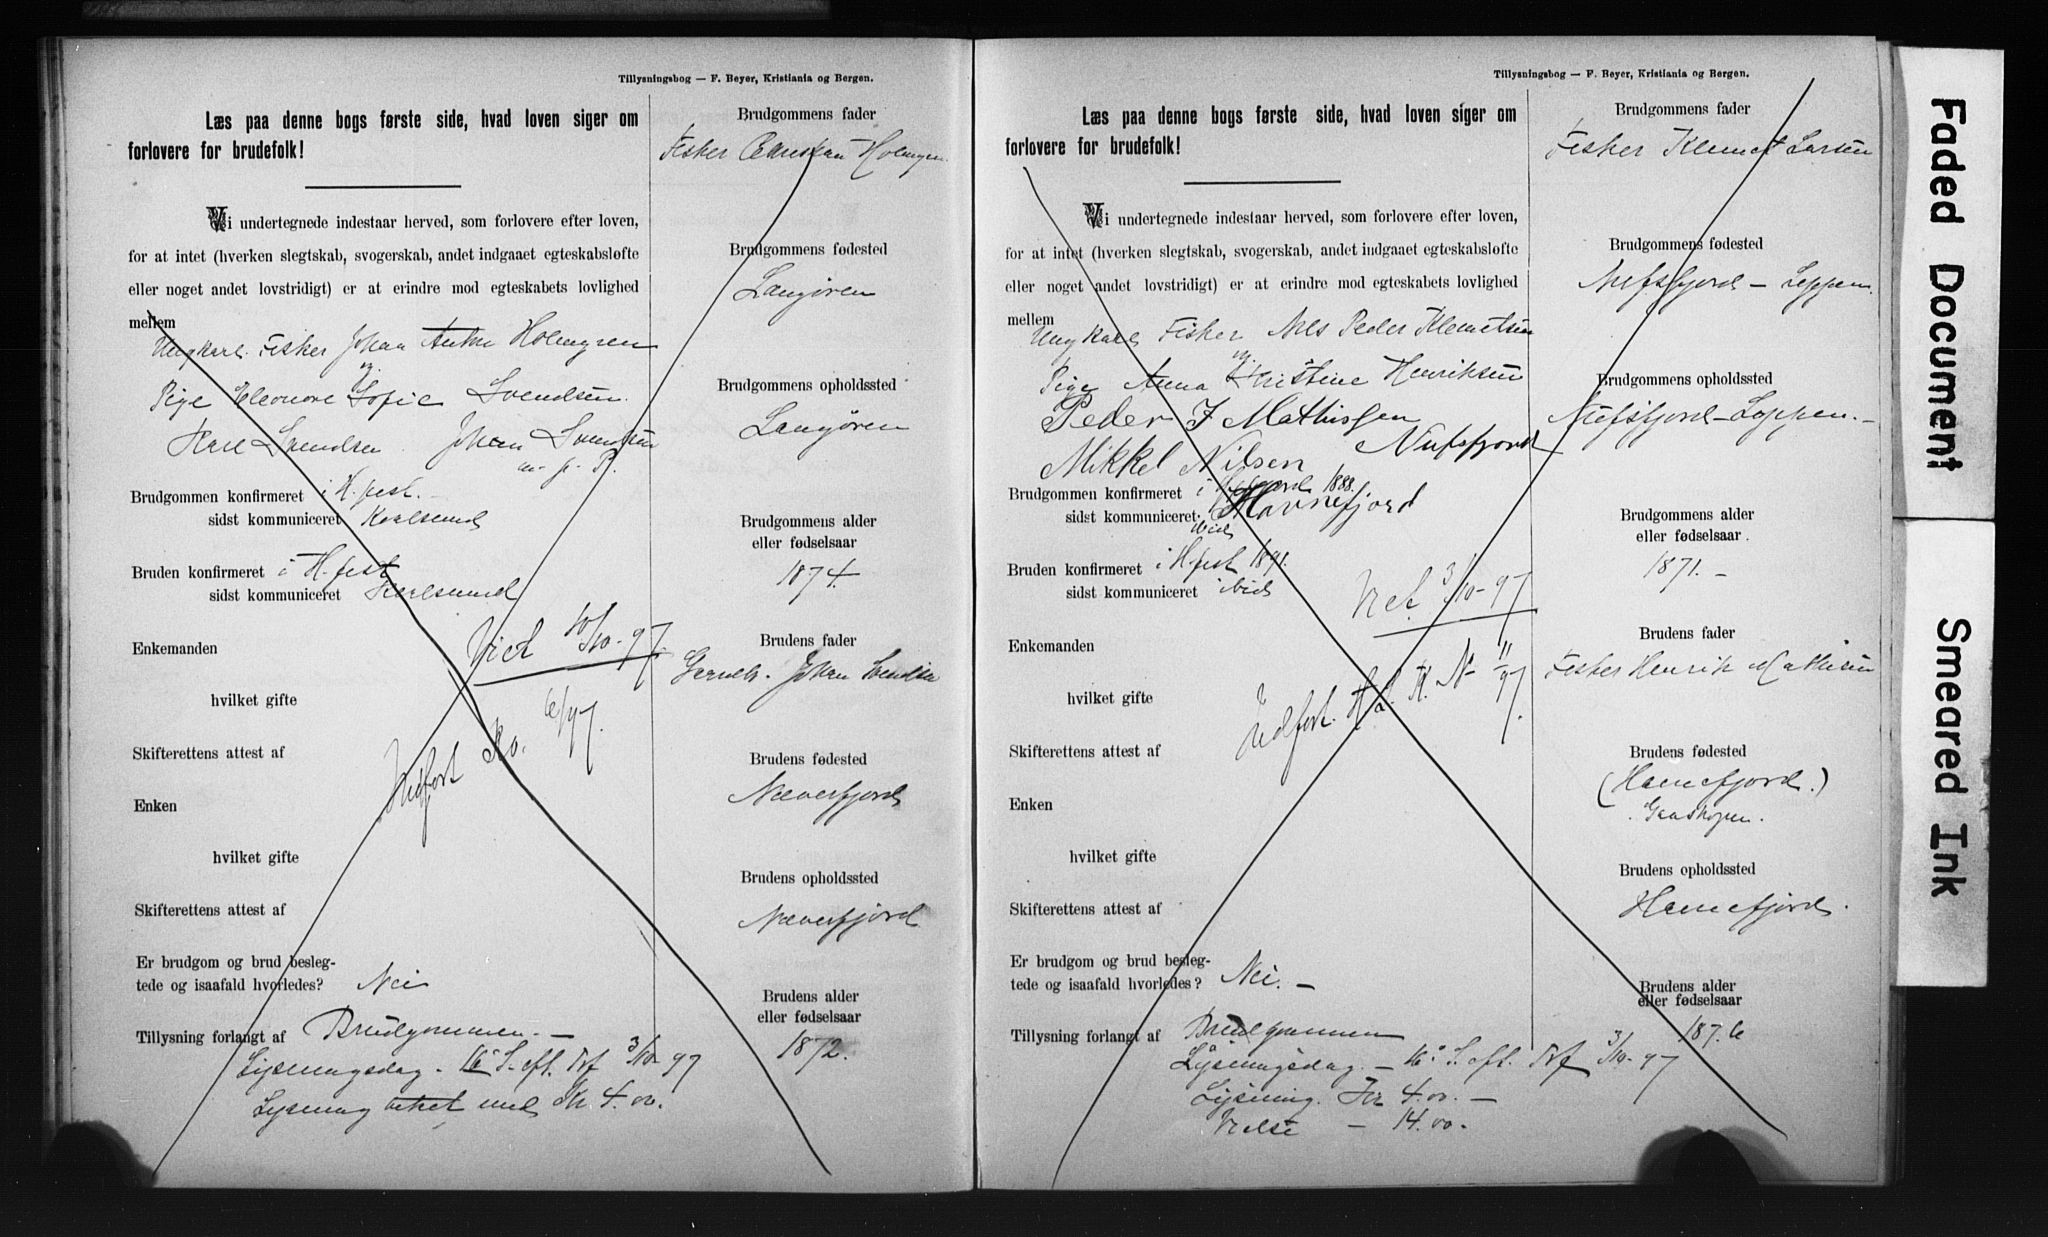 Tillysningsbog — F. Beyer, Kristiania og Bergen.
Læs paa denne bogs første side, hvad loven siger om
forlovere for brudefolk!
Vi undertegnede indestaar herved, som forlovere efter loven,
for at intet (hverken slegtskab, svogerskab, andet indgaaet egteskabsløfte
eller noget andet lovstridigt) er at erindre mod egteskabets lovlighed
mellem
Ungkarl Fisker Johan Holmgren
og
Pige Eleonore Sofie Svendsen.
Svendsen Johan Svendsen
m. p. P.
Brudgommen konfirmeret i H.fest.
sidst kommuniceret Kvalsund
Bruden konfirmeret i H.fest
sidst kommuniceret Kvalsund
Enkemanden
hvilket gifte
Skifterettens attest af
Enken
hvilket gifte
Skifterettens attest af
Viet 10/10-97
Indført Kv. 6/97.
Er brudgom og brud besleg-
tede og isaafald hvorledes? Nei
Tillysning forlangt af Brudgommen. —
Lysningsdag. 16 S. eft. Trf 3/10-97
Lysning med Kr. 4.00.
Brudgommens fader
Fisker Holmgren
Brudgommens fødested
Langøren
Brudgommens opholdssted
Langøren
Brudgommens alder
eller fødselsaar
1874.
Brudens fader
Johan Svendsen
Brudens fødested
Næverfjord
Brudens opholdssted
Næverfjord
Brudens alder
eller fødselsaar
1872.
Tillysningsbog — F. Beyer, Kristiania og Bergen.
Læs paa denne bogs første side, hvad loven siger om
forlovere for brudefolk!
Vi undertegnede indestaar herved, som forlovere efter loven,
for at intet (hverken slegtskab, svogerskab, andet indgaaet egteskabsløfte
eller noget andet lovstridigt) er at erindre mod egteskabets lovlighed
mellem
Ungkarl Fisker Nils Peder Klemetsen
og
Pige Anna Kristine Henriksen
Peder J Mathissen
Nufsfjord
Mikkel Nilsen
Havnefjord
Brudgommen konfirmeret i 1888.
sidst kommuniceret ibid
Bruden konfirmeret i H.fest 1891.
sidst kommuniceret ibid
Enkemanden
hvilket gifte
Skifterettens attest af
Enken
hvilket gifte
Skifterettens attest af
Viet 3/10-97
Indført. H. K. N 11/97.
Er brudgom og brud besleg-
tede og isaafald hvorledes? Nei. —
Tillysning forlangt af Brudgommen
Lysningsdag. — 16 S. eft. Trf 3/10-97
Lysning. Kr 4.00. —
Vielse — 14.00.
Brudgommens fader
Fisker Klemet Larsen
Brudgommens fødested
Nufsfjord — Loppen.
Brudgommens opholdssted
Nufsfjord — Loppen. —
Brudgommens alder
eller fødselsaar.
1871. —
Brudens fader
Fisker Henrik Mathisen
Brudens fødested
(Havnefjord.)
Gaashopen.
Brudens opholdssted
Havnefjord.
Brudens alder
eller fødselsaar
1876
Faded Document
Smeared Ink